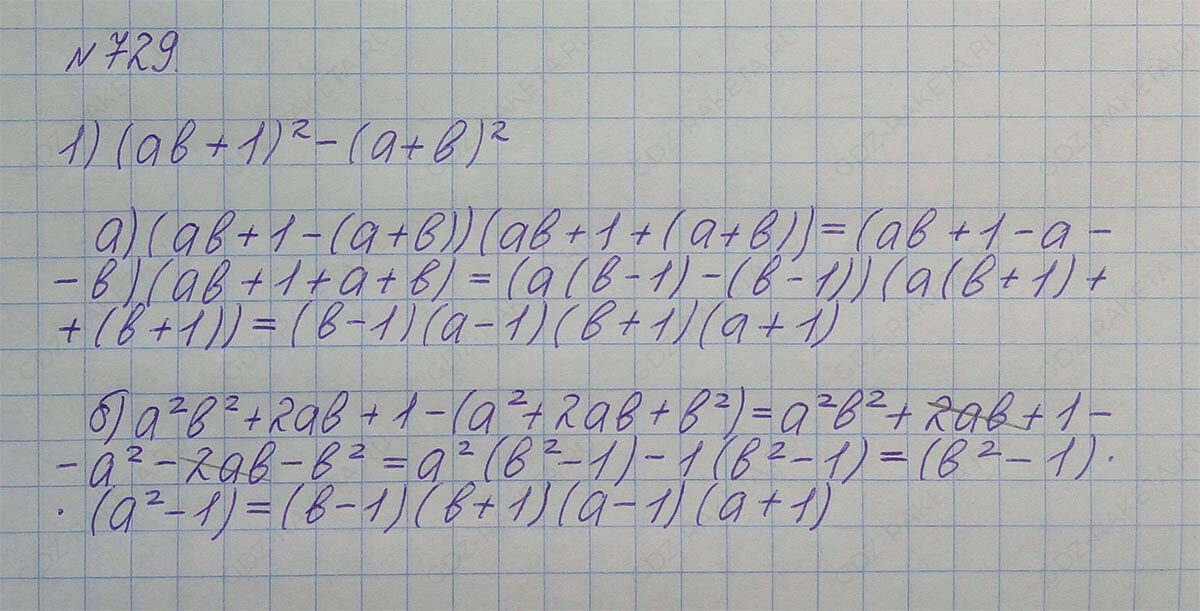 №729
1) (ab+1)²-(a+b)²
а) (ab+1-(a+b))(ab+1+(a+b))=(ab+1-a-
-b)(ab+1+a+b)=(a(b-1)-(b-1))(a(b+1)+
+(b+1))=(b-1)(a-1)(b+1)(a+1)
б) a²b²+2ab+1-(a²+2ab+b²)=a²b²+2ab+1-
-a²-2ab-b²=a²(b²-1)-1(b²-1)=(b²-1)·
·(a²-1)=(b-1)(b+1)(a-1)(a+1)
GDZ-RAKETA.RU